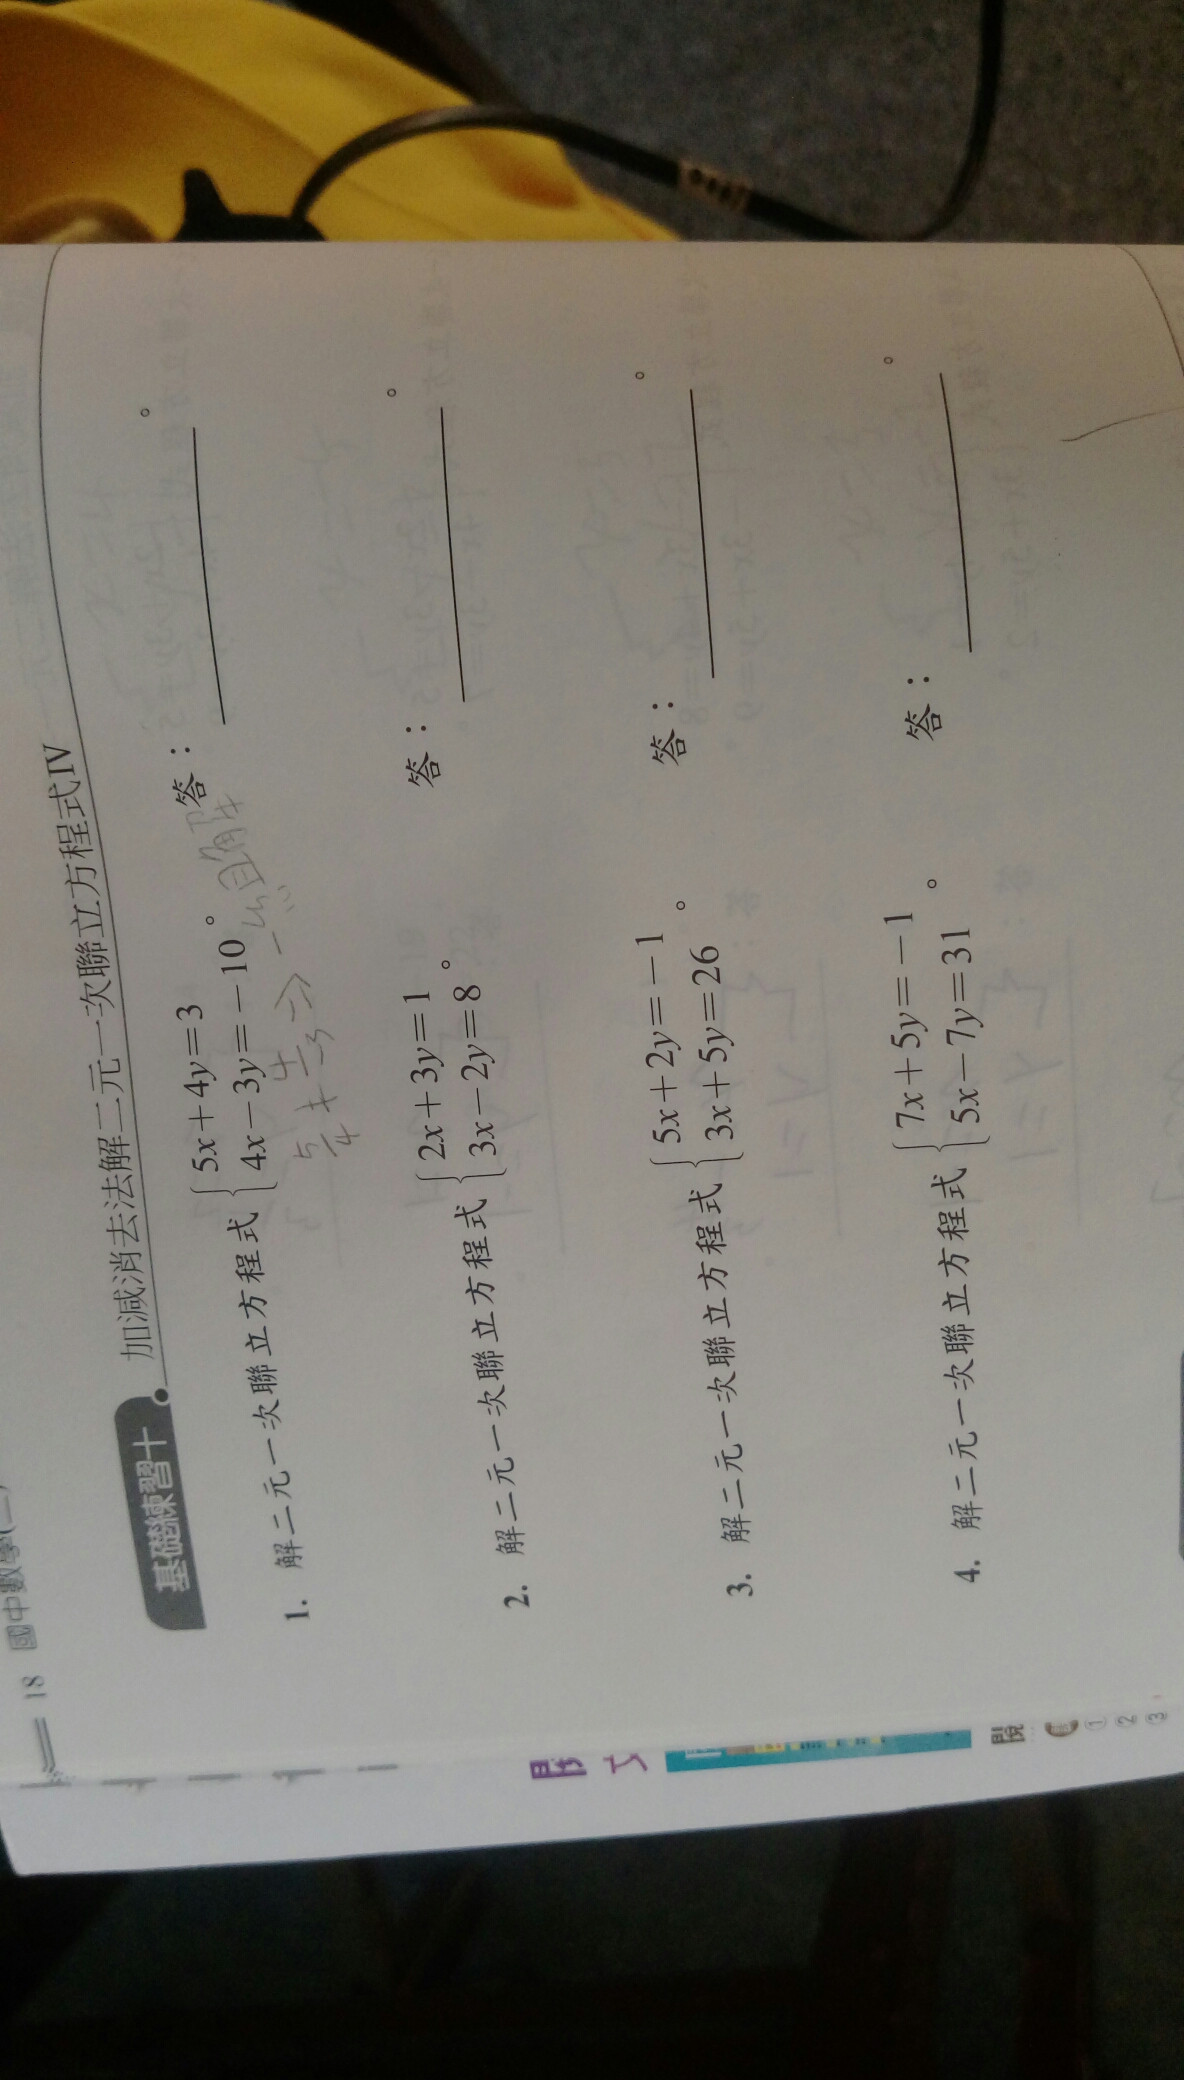 18 國中數學(二)
基礎練習十 加減消去法解二元一次聯立方程式Ⅳ
1. 解二元一次聯立方程式{5x+4y=3
4x-3y=-10。 答：。
5/4 ≠ 4/-3 ⇒ 一組解
2. 解二元一次聯立方程式{2x+3y=1
3x-2y=8。 答：。
3. 解二元一次聯立方程式{5x+2y=-1
3x+5y=26。 答：。
4. 解二元一次聯立方程式{7x+5y=-1
5x-7y=31。 答：。
①
②
③